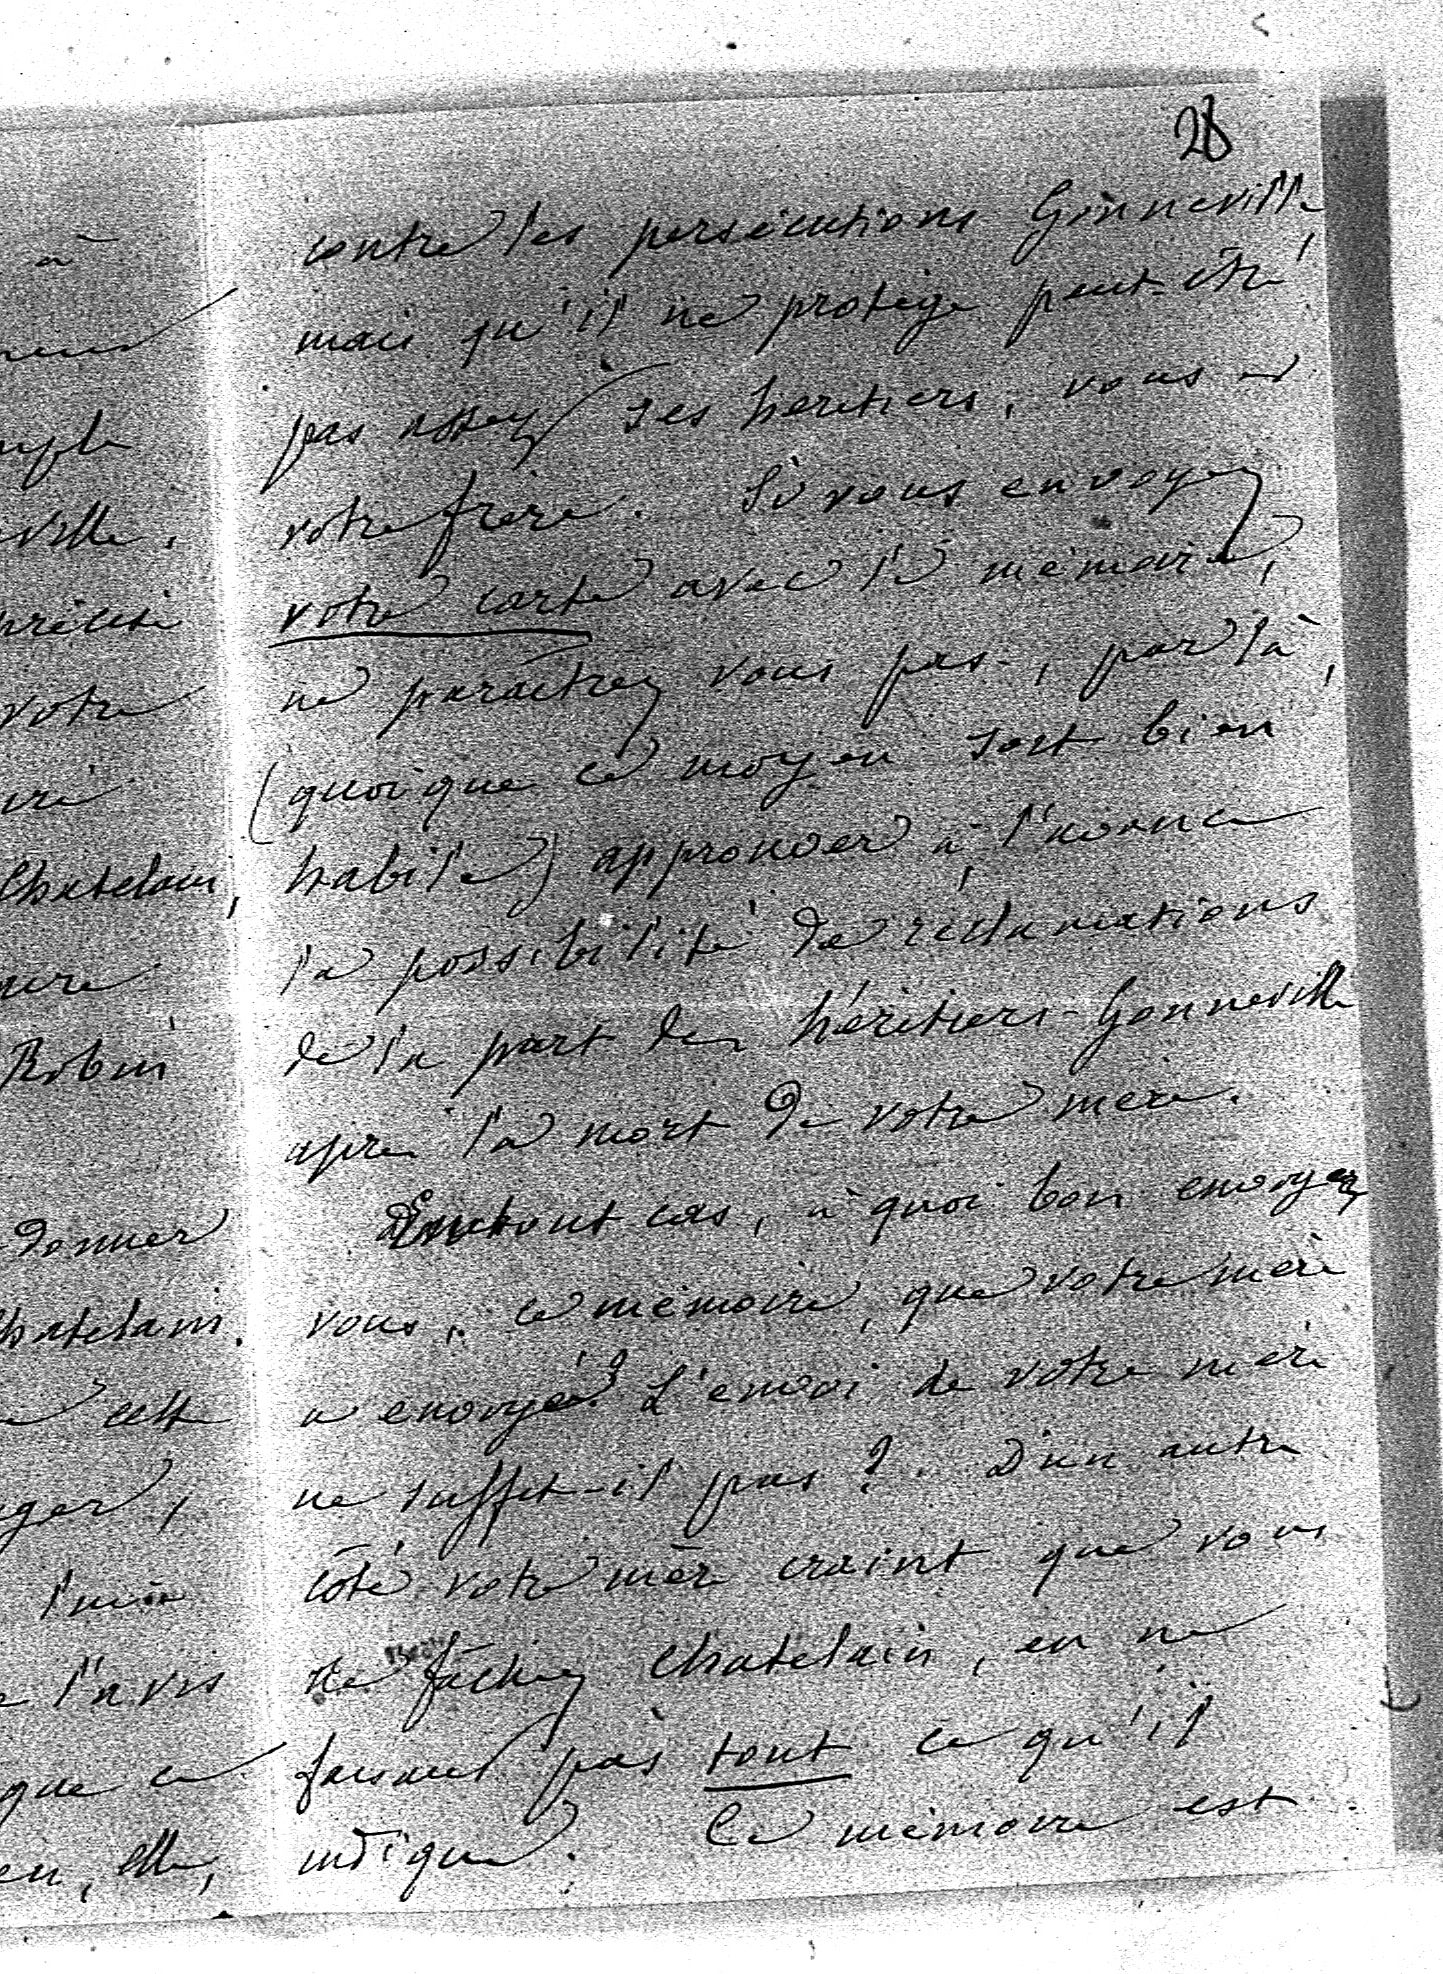 28
contre les persécutions Gonneville
mais qu'il ne protège peut-être
pas assez ses héritiers, vous et
votre frère. Si vous envoyez
votre carte avec le mémoire,
ne paraîtrez vous pas, par là,
(quoique ce moyen soit bien
habile) approuver à l'avance
la possibilité de réclamations
de la part des héritiers-Gonneville
après la mort de votre mère.
En tout cas, à quoi bon envoyer
vous, ce mémoire, que votre mère
a envoyé? L'envoi de votre mère
ne suffit-il pas? D'un autre
côté votre mère craint que vous
ne fâchiez Chatelain, en ne
faisant pas tout ce qu'il
indique. Ce mémoire est
à
ville,
votre
Chatelain,
Robin
donner
Chatelain.
cette
l'avis
que ce
elle,